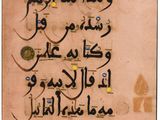 رُشْدَهُ مِن قَبْلُ
وَكُنَّا بِهِ عَلِمِينَ
إِذْ قَالَ لِأَبِيهِ وَقَوْ
مِهِ مَا هَذِهِ التَّمَاثِيلُ